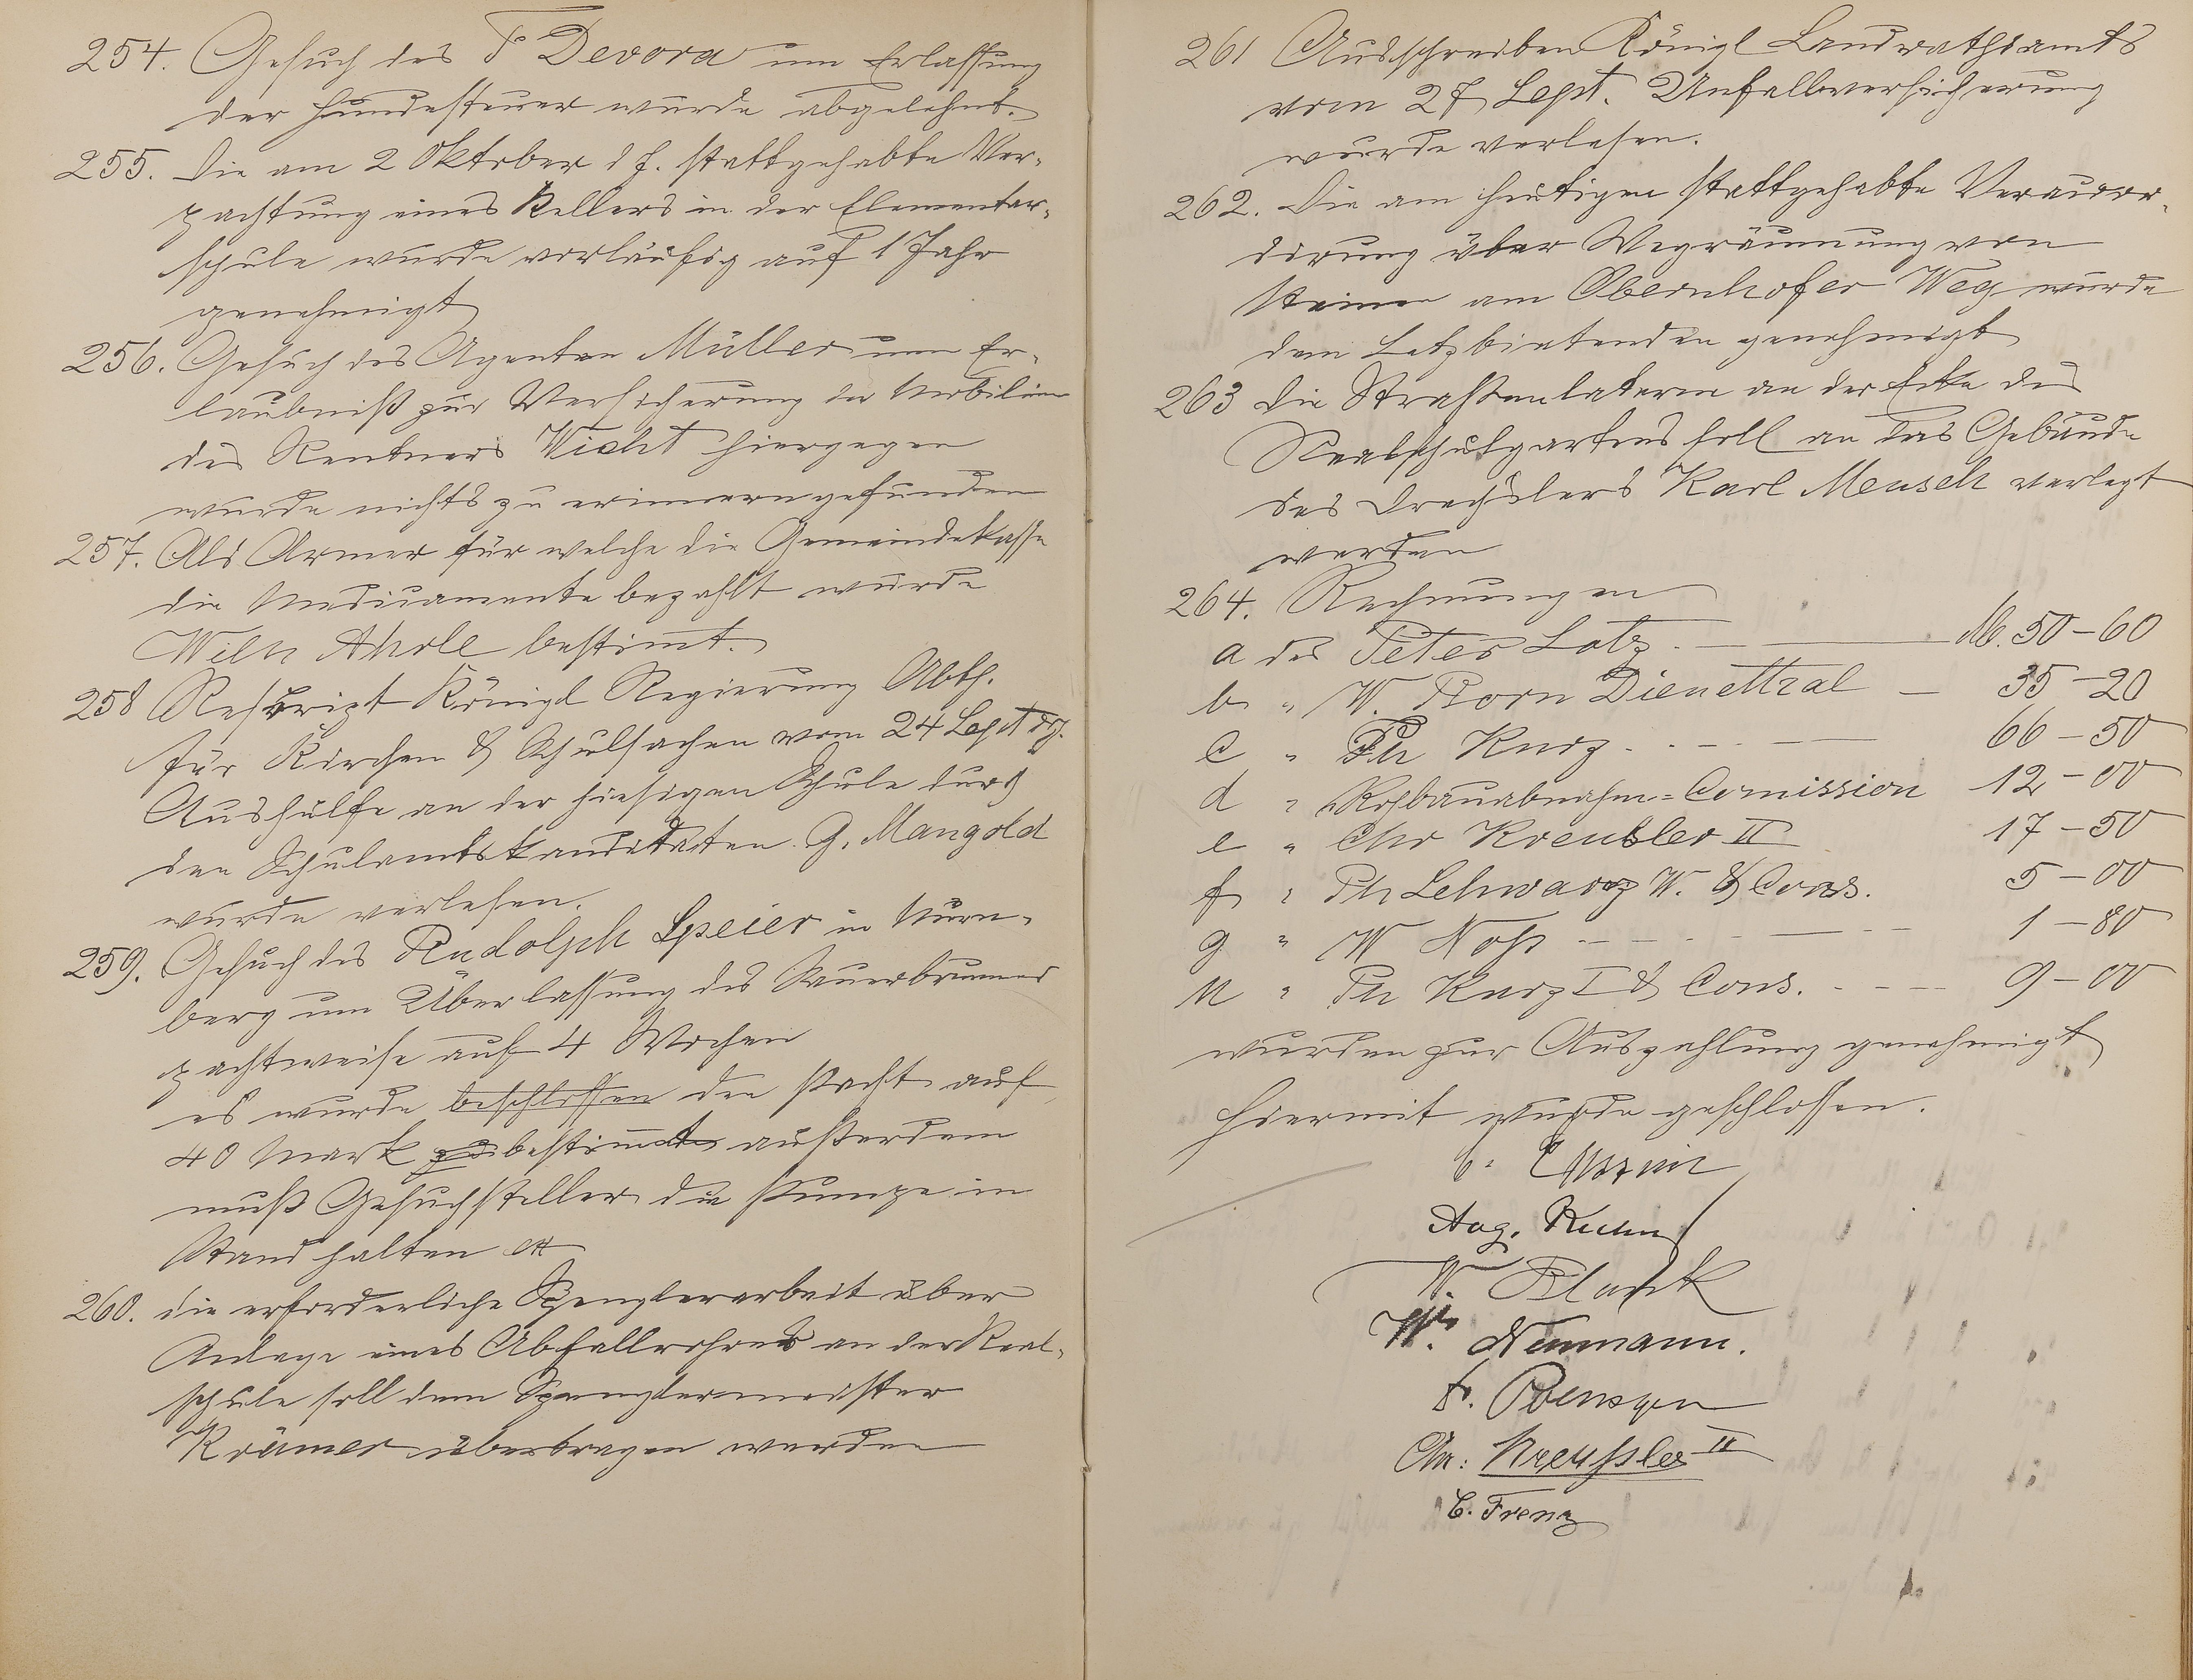 254. Gesuch des F Devora um Erlassung
der Hundesteuer wurde abgelehnt.
255. Die am 2 Oktober d J. stattgehabte Ver-
pachtung eines Kellers in der Elementar-
schule wurde vorläufig auf 1 Jahr
genehmigt
256. Gesuch des Agenten Müller um Er-
laubniß zur Versicherung der Mobilien
des Rentners Wicht hiergegen
wurde nichts zu erinnern gefunden
257. Als Armer für welche die Gemeindekasse
die Medicamente bezahlt wurde
Wilh bestimt.
258 Rescript Königl Regierung Abth.
für Kirchen & Schulsachen vom 24 Sept dJ.
Aushülfe an der hiesigen Schule durch
den Schulamtskandidaten G. Mangold
wurde verlesen.
259. Gesuch des Rudolph Speier in Nürn-
berg um Überlassung des Sauerbrunnes
pachtweise auf 4 Wochen
es wurde beschlossen den Pacht auf
40 Mark zu bestimt außerdem
muß Gesuchsteller die Pumpe in
Stand halten ect
260. die erforderliche Spenglerarbeit über
Anlage eines Abfallrohres an der Real-
schule soll dem Spenglermeister
Krämer übertragen werden
261 Ausschreiben Königl Landrathsamts
vom 27 Sept. Unfallversicherung
wurde verlesen.
262. Die am heutigen stattgehabte Veraccor-
dirung über Wegräumung von
Steinen am Obernhofer Weg wurde
dem Letzbietenden genehmigt
263 Die Straßenlaterne an der Ecke des
Realschulgartens soll an das Gebäude
des Drechslers Karl Mensch verlegt
werden
264. Rechnungen
a des Peter Lotz. M. 50-60
b " W. Born Dienethal 35-20
c " Ph Kurz 66-50
d " Rohbauabnahme-Comission 12-00
e " Chr Kreusler II 17-50
f " Ph Schwarz W. & Cons. 5-00
g " W Noß 1-80
h " Ph Kurz I & Cons. 9-00
wurden zur Auszahlung genehmigt
Hiermit wurde geschlossen.
Aug. Kuhn
W. Blank
Wh. Neumann.
Chr: Kreußler II
C. Frenz